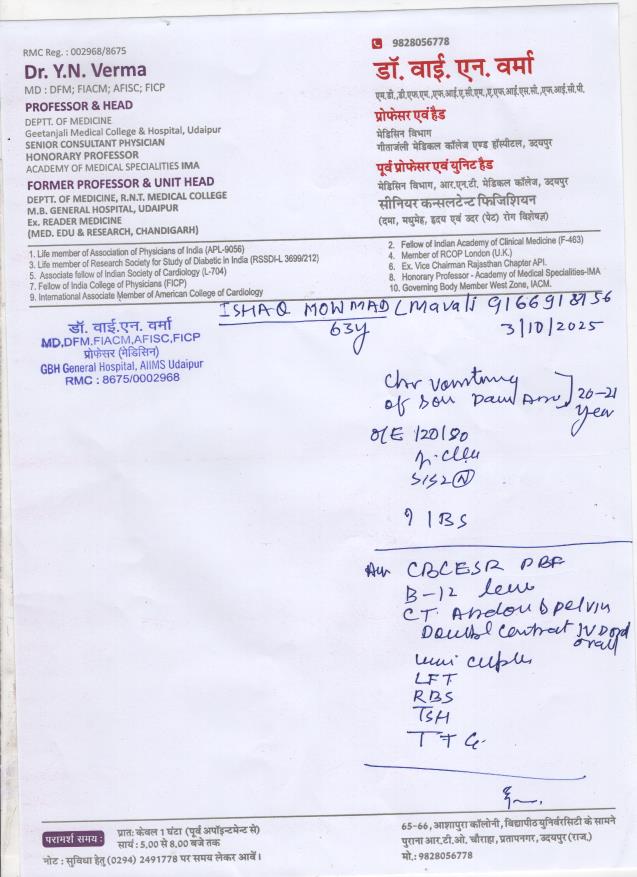 RMC Reg. : 002968/8675
Dr. Y.N. Verma
MD : DFM; FIACM; AFISC; FICP
PROFESSOR & HEAD
DEPTT. OF MEDICINE
Geetanjali Medical College & Hospital, Udaipur
SENIOR CONSULTANT PHYSICIAN
HONORARY PROFESSOR
ACADEMY OF MEDICAL SPECIALITIES IMA
FORMER PROFESSOR & UNIT HEAD
DEPTT. OF MEDICINE, R.N.T. MEDICAL COLLEGE
M.B. GENERAL HOSPITAL, UDAIPUR
Ex. READER MEDICINE
(MED. EDU & RESEARCH, CHANDIGARH)
9828056778
डॉ. वाई. एन. वर्मा
एम.डी.,डी.एफ.एम.,एफ.आई.ए.सी.एम.,ए.एफ.आई.एस.सी.,एफ.आई.सी.पी.
प्रोफेसर एवं हैड
मेडिसिन विभाग
गीतांजली मेडिकल कॉलेज एण्ड हॉस्पीटल, उदयपुर
पूर्व प्रोफेसर एवं युनिट हैड
मेडिसिन विभाग, आर.एन.टी. मेडिकल कॉलेज, उदयपुर
सीनियर कन्सलटेन्ट फिजिशियन
(दमा, मधुमेह, हृदय एवं उदर (पेट) रोग विशेषज्ञ)
1. Life member of Association of Physicians of India (APL-9056)
3. Life member of Research Society for Study of Diabetic in India (RSSDI-L 3699/212)
5. Associate fellow of Indian Society of Cardiology (L-704)
7. Fellow of India College of Physicians (FICP)
9. International Associate Member of American College of Cardiology
2. Fellow of Indian Academy of Clinical Medicine (F-463)
4. Member of RCOP London (U.K.)
6. Ex. Vice Chairman Rajasthan Chapter API.
8. Honorary Professor - Academy of Medical Specialities-IMA
10. Governing Body Member West Zone, IACM.
ISHAQ MOWMAD (Mavali 9166918156
63y 3/10/2025
डॉ. वाई.एन. वर्मा
MD,DFM,FIACM,AFISC,FICP
प्रोफेसर (मेडिसिन)
GBH General Hospital, AIIMS Udaipur
RMC : 8675/0002968
Chr vomiting
of 20-21
year
O/E 120/80
S1S2 N
? IBS
CBC ESR PBF
B-12
CT. Abdou & pelvin
Doubl contrast IV
oral
LFT
RBS
TSH
TTG
परामर्श समय :
प्रात: केवल 1 घंटा (पूर्व अपॉइन्टमेन्ट से)
सायं : 5.00 से 8.00 बजे तक
नोट : सुविधा हेतु (0294) 2491778 पर समय लेकर आवें।
65-66, आशापुरा कॉलोनी, विद्यापीठ युनिर्वरसिटी के सामने
पुराना आर.टी.ओ. चौराहा, प्रतापनगर, उदयपुर (राज.)
मो.: 9828056778